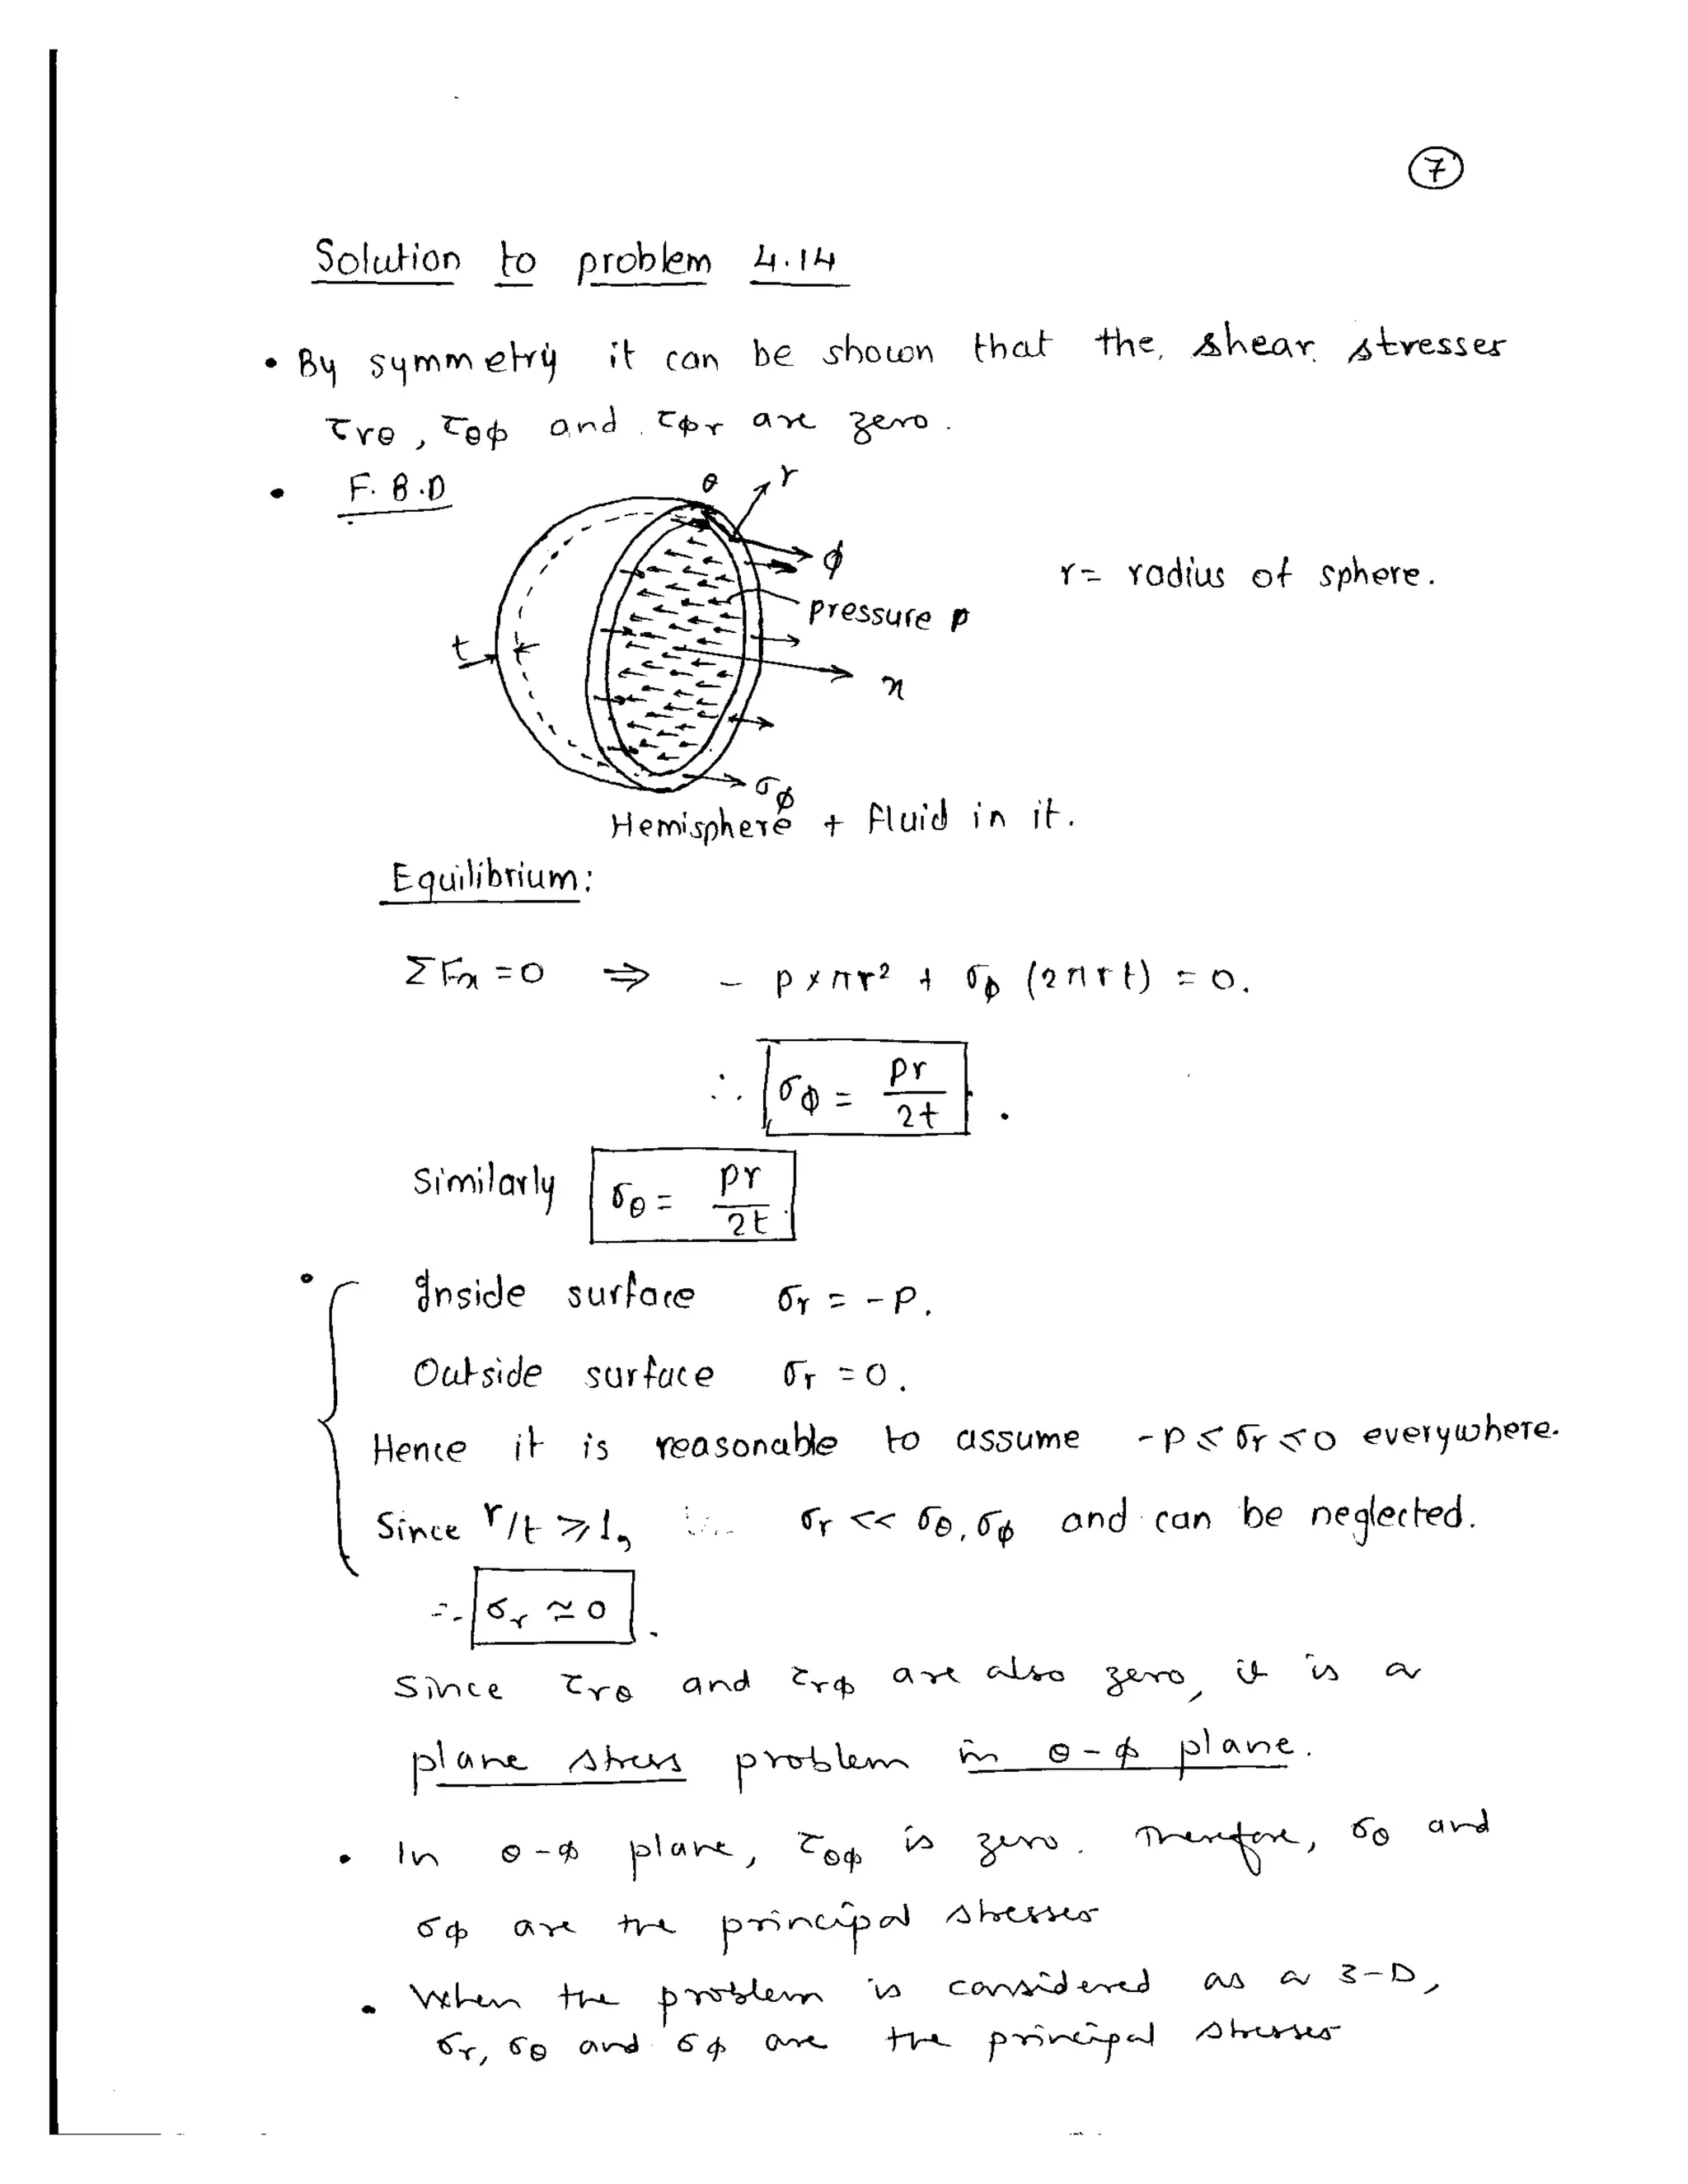 7
Solution to problem 4.14
• By symmetry it can be shown that the shear stresses
τrθ, τθϕ and τϕr are zero.
• F.B.D
θ r
ϕ
r = radius of sphere.
pressure p
t
x
σϕ
Hemisphere + fluid in it.
Equilibrium:
ΣFx = 0 ⇒ - p × πr² + σϕ (2πrt) = 0.
∴ σϕ = pr/2t .
Similarly σθ = pr/2t .
• Inside surface σr = -p.
Outside surface σr = 0.
Hence it is reasonable to assume -p ≤ σr ≤ 0 everywhere.
Since r/t ⩾ 1, σr << σθ, σϕ and can be neglected.
∴ σr ≃ 0 .
Since τrθ and τrϕ are also zero, it is a
plane stress problem in θ-ϕ plane.
• In θ-ϕ plane, τθϕ is zero. Therefore, σθ and
σϕ are the principal stresses
• When the problem is considered as a 3-D,
σr, σθ and σϕ are the principal stresses